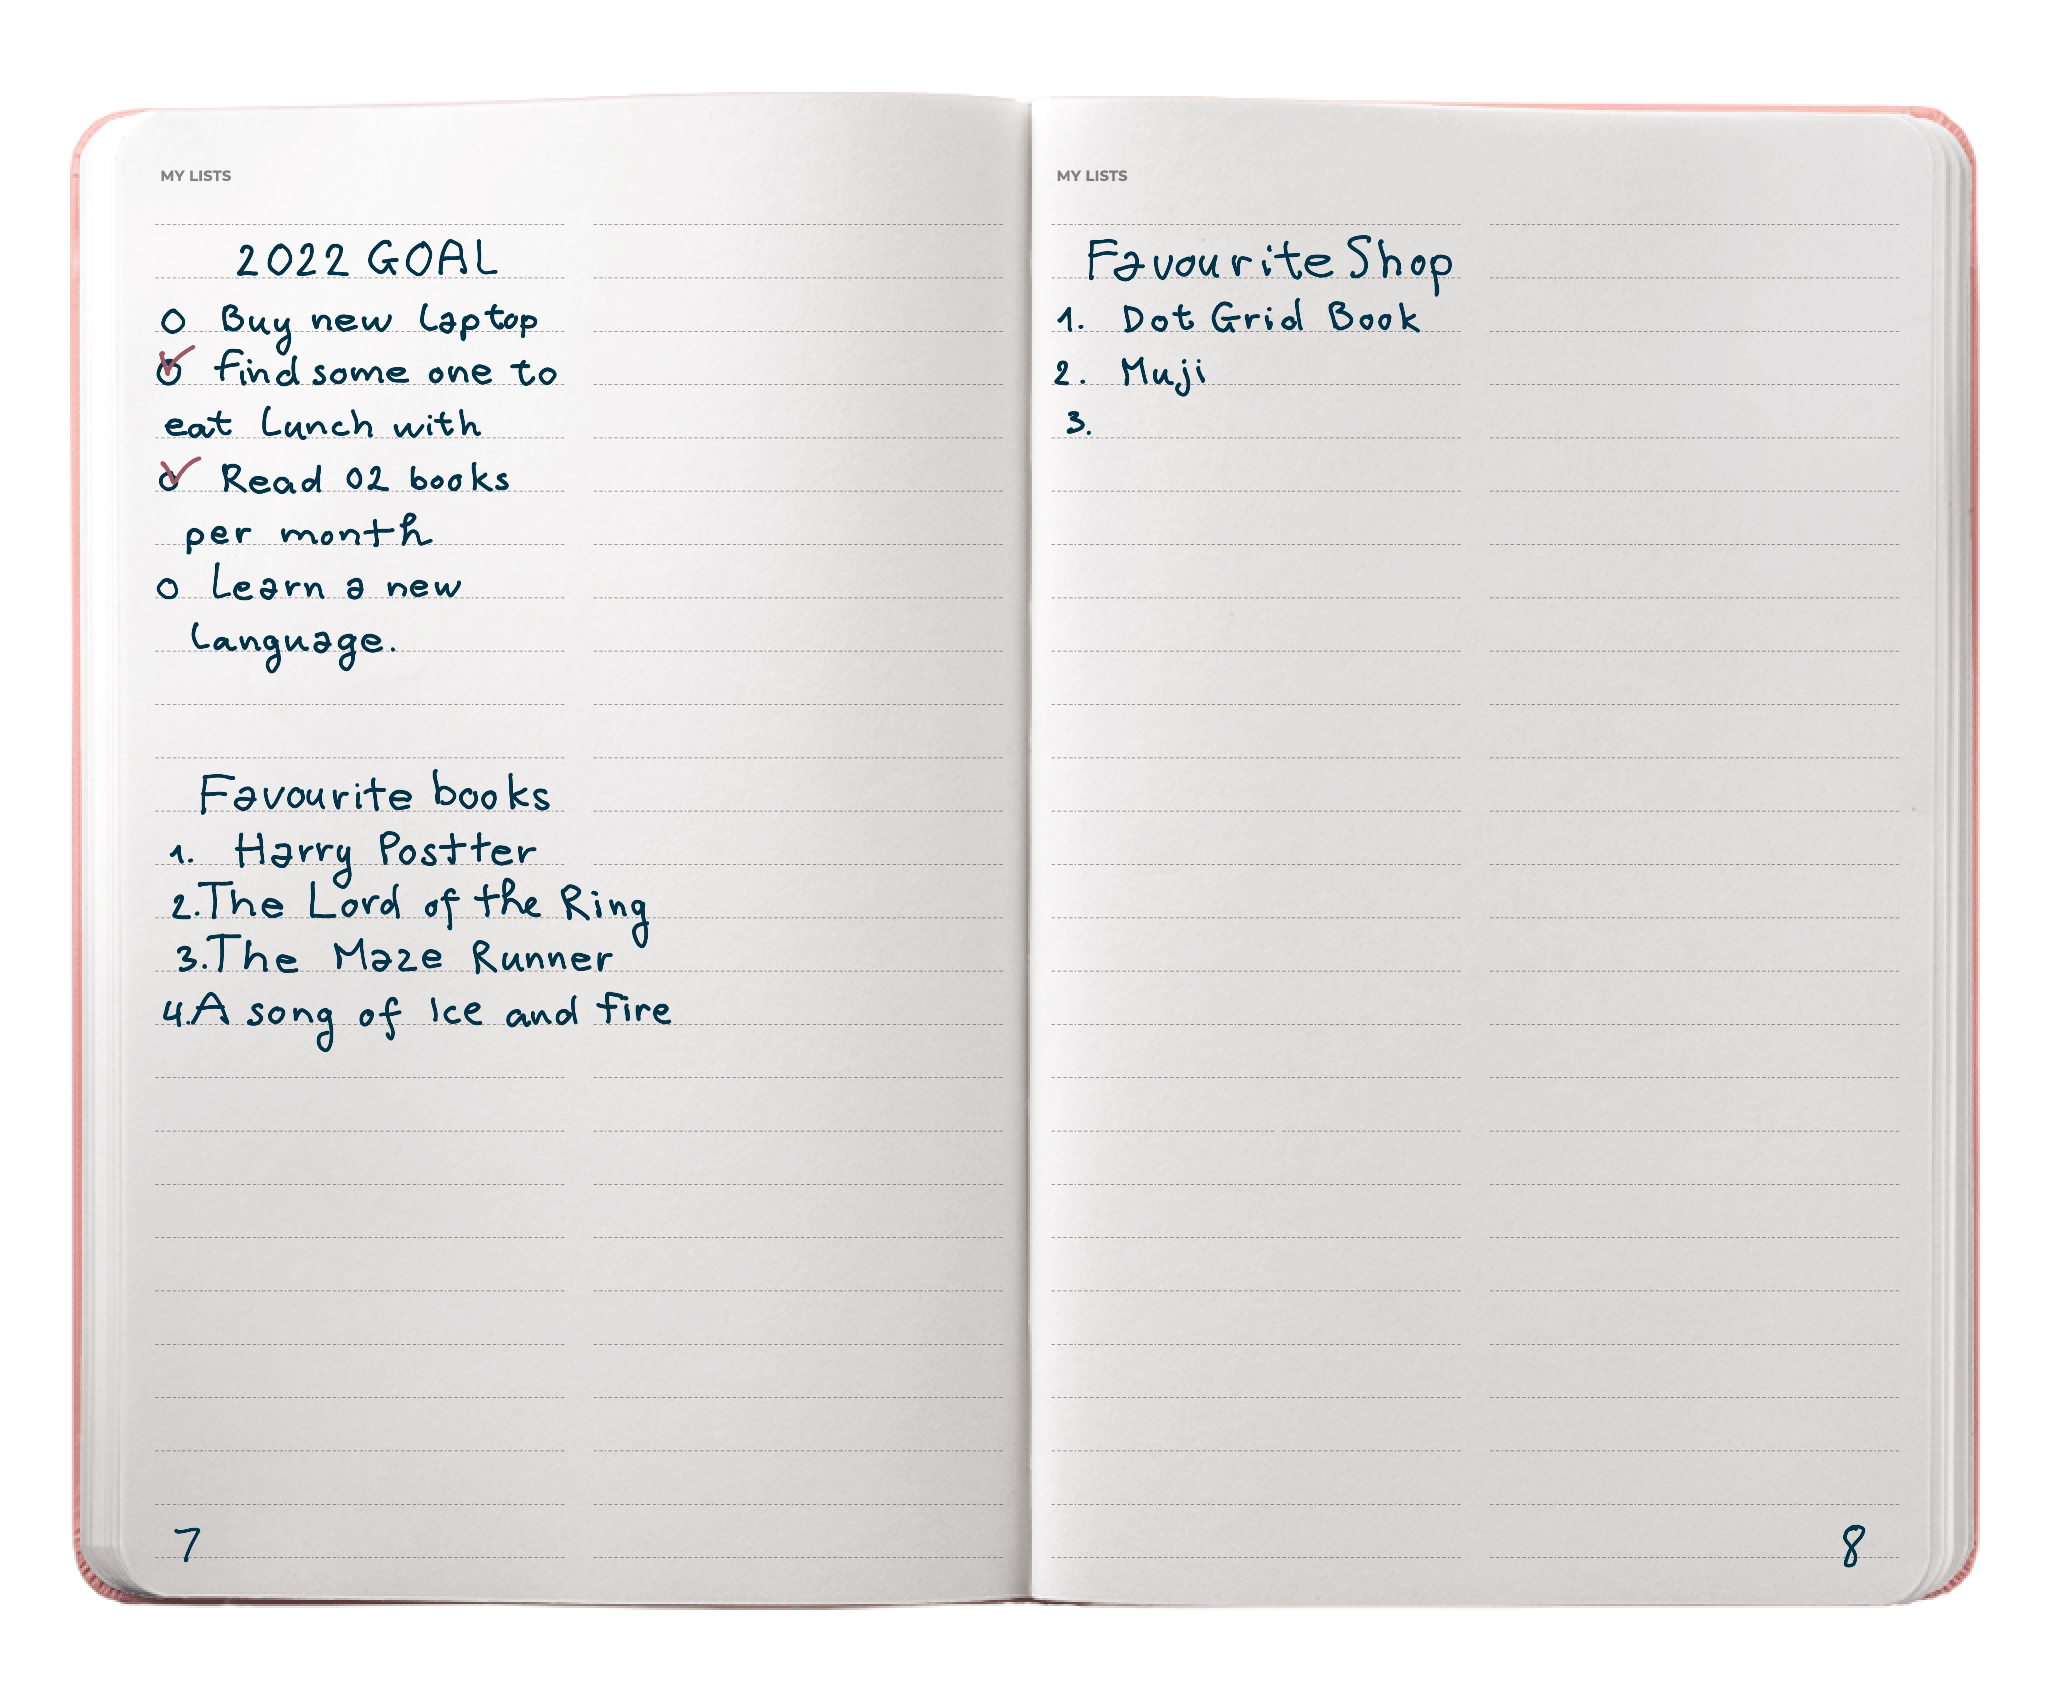 MY LISTS
2022 GOAL
Buy new laptop
find some one to
eat lunch with
Read 02 books
per month
Learn a new
language.
Favourite books
1. Harry Postter
2. The Lord of the Ring
3. The Maze Runner
4. A song of Ice and fire
7
MY LISTS
Favourite Shop
1. Dot Grid Book
2. Muji
3.
8